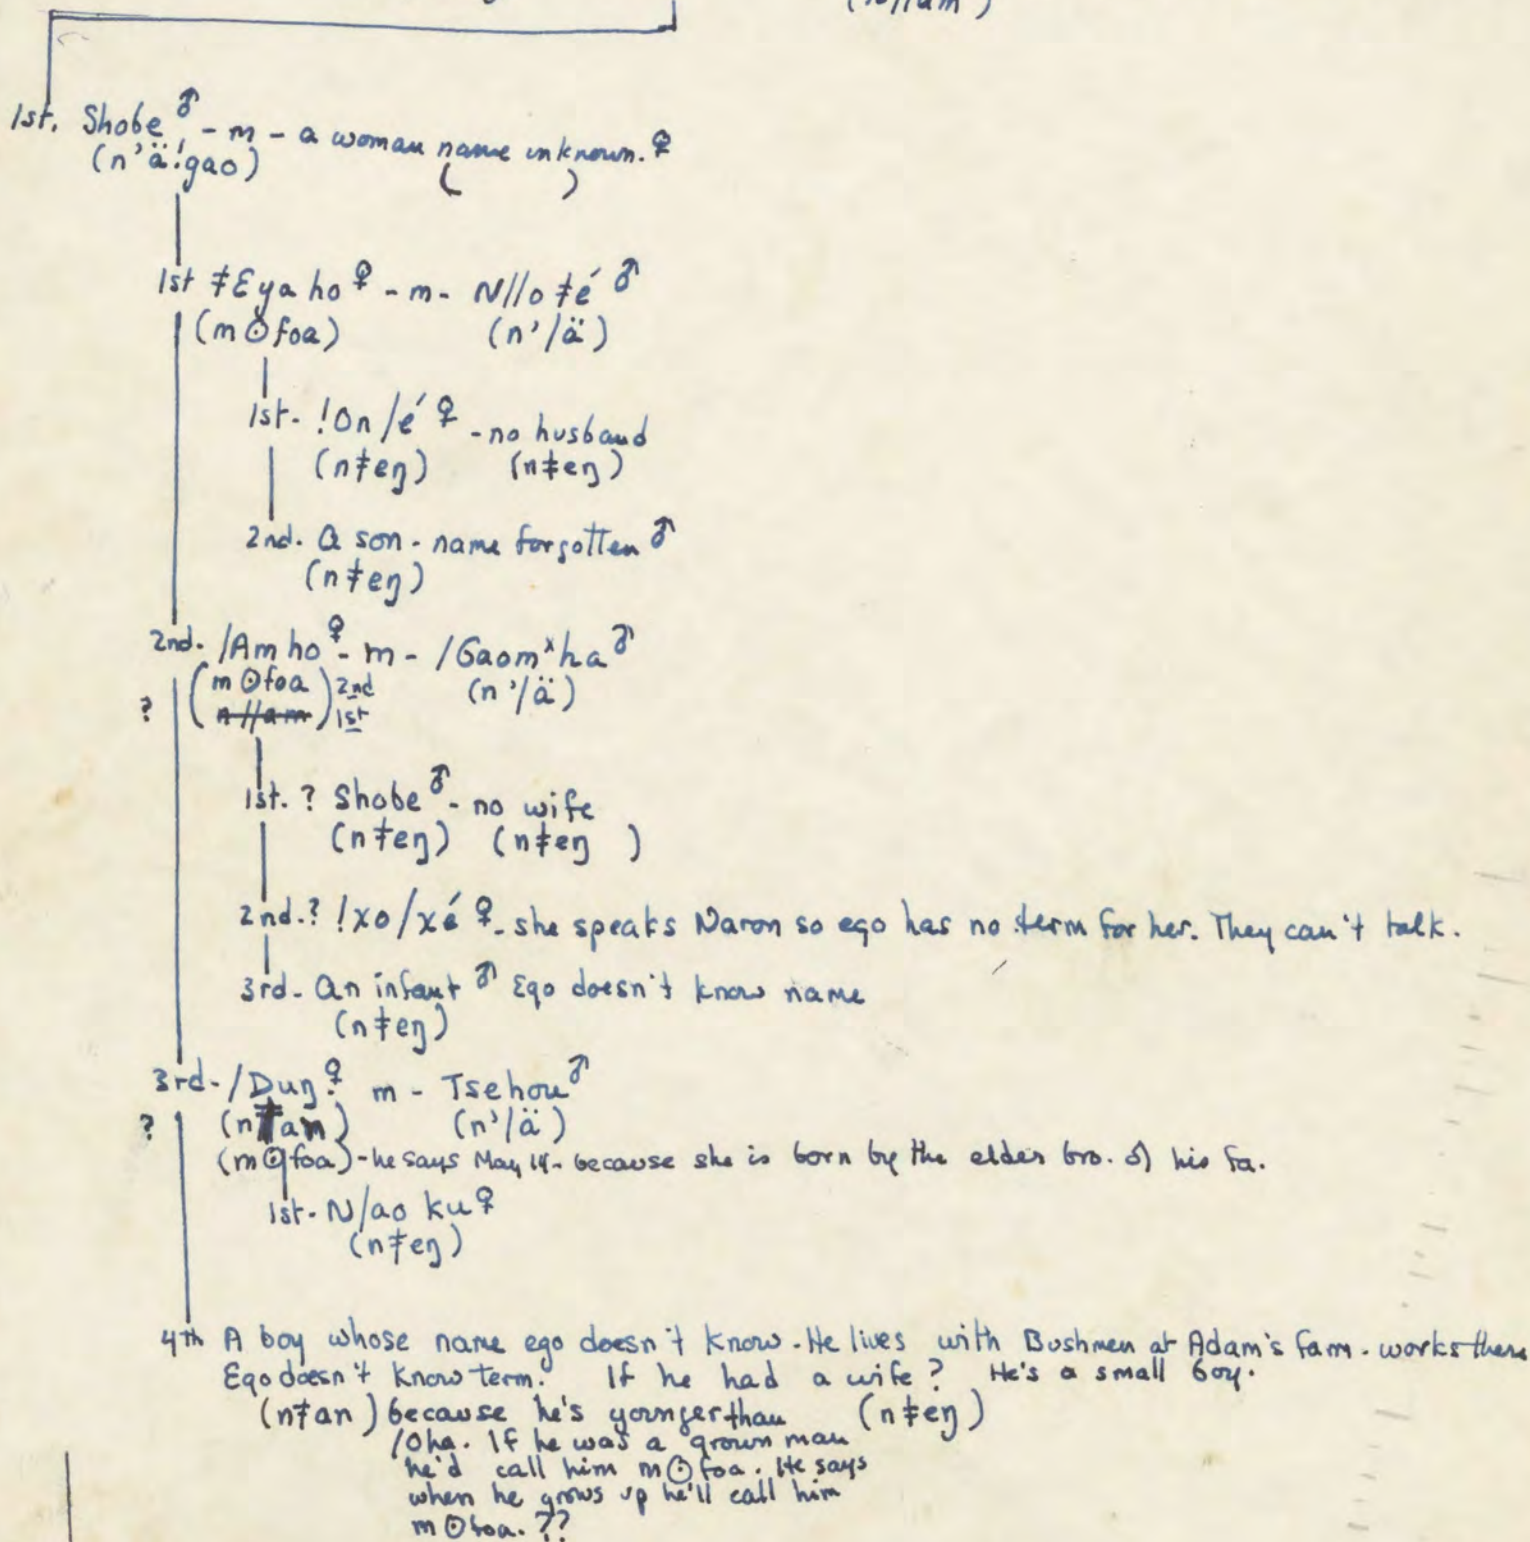 1st. Shobe ♂ - m - a woman name unknown. ♀
(n'ä!gao) ( )
1st ǂEya ho ♀ - m - N//o ǂé ♂
(m ʘ foa) (n'/ä)
1st. !On /é ♀ - no husband
(nǂeŋ) (nǂeŋ)
2nd. A son - name forgotten ♂
(nǂeŋ)
2nd. /Am ho ♀ - m - /Gaomˣha ♂
(m ʘ foa) 2nd (n'/ä)
? (n//am) 1st
1st. ? Shobe ♂ - no wife
(nǂeŋ) (nǂeŋ )
2nd. ? !xo /xé ♀ - she speaks Naron so ego has no term for her. They can't talk.
3rd - An infant ♂ Ego doesn't know name
(nǂeŋ)
3rd - /Duŋ ♀ m - Tsehou ♂
? (nǂan) (n'/ä)
(m ʘ foa) - he says May 14 - because she is born by the elder bro. of his fa.
1st - N/ao ku ♀
(nǂeŋ)
4th A boy whose name ego doesn't know. He lives with Bushmen at Adam's farm. works there
Ego doesn't know term. If he had a wife? He's a small boy.
(nǂan) because he's younger than (nǂeŋ)
/Oha. If he was a grown man
he'd call him m ʘ foa. He says
when he grows up he'll call him
m ʘ foa. ??